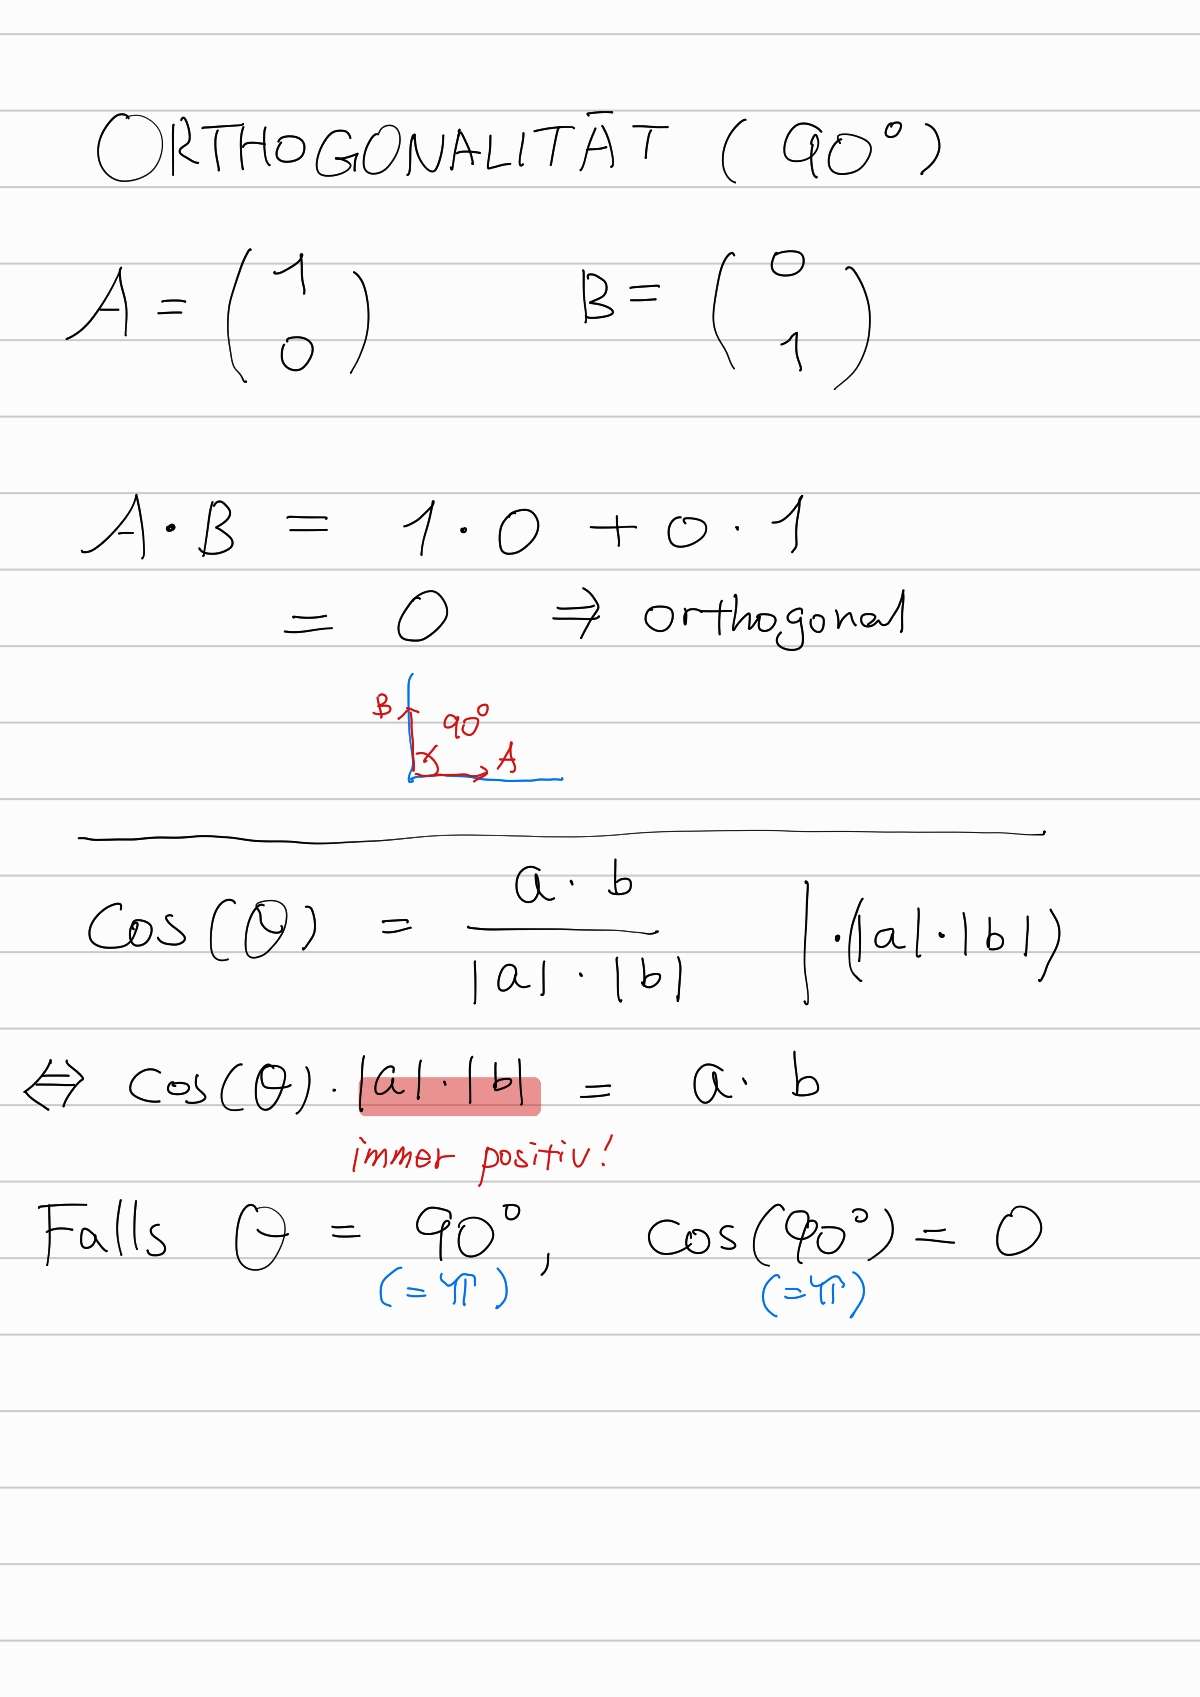 ORTHOGONALITÄT (90°)
A = (1 0) B = (0 1)
A · B = 1 · 0 + 0 · 1
= 0 ⇒ orthogonal
B 90° A
cos(θ) = a · b / |a| · |b| | · (|a| · |b|)
⇔ cos(θ) · |a| · |b| = a · b
immer positiv!
Falls θ = 90°, cos(90°) = 0
(=π) (=π)